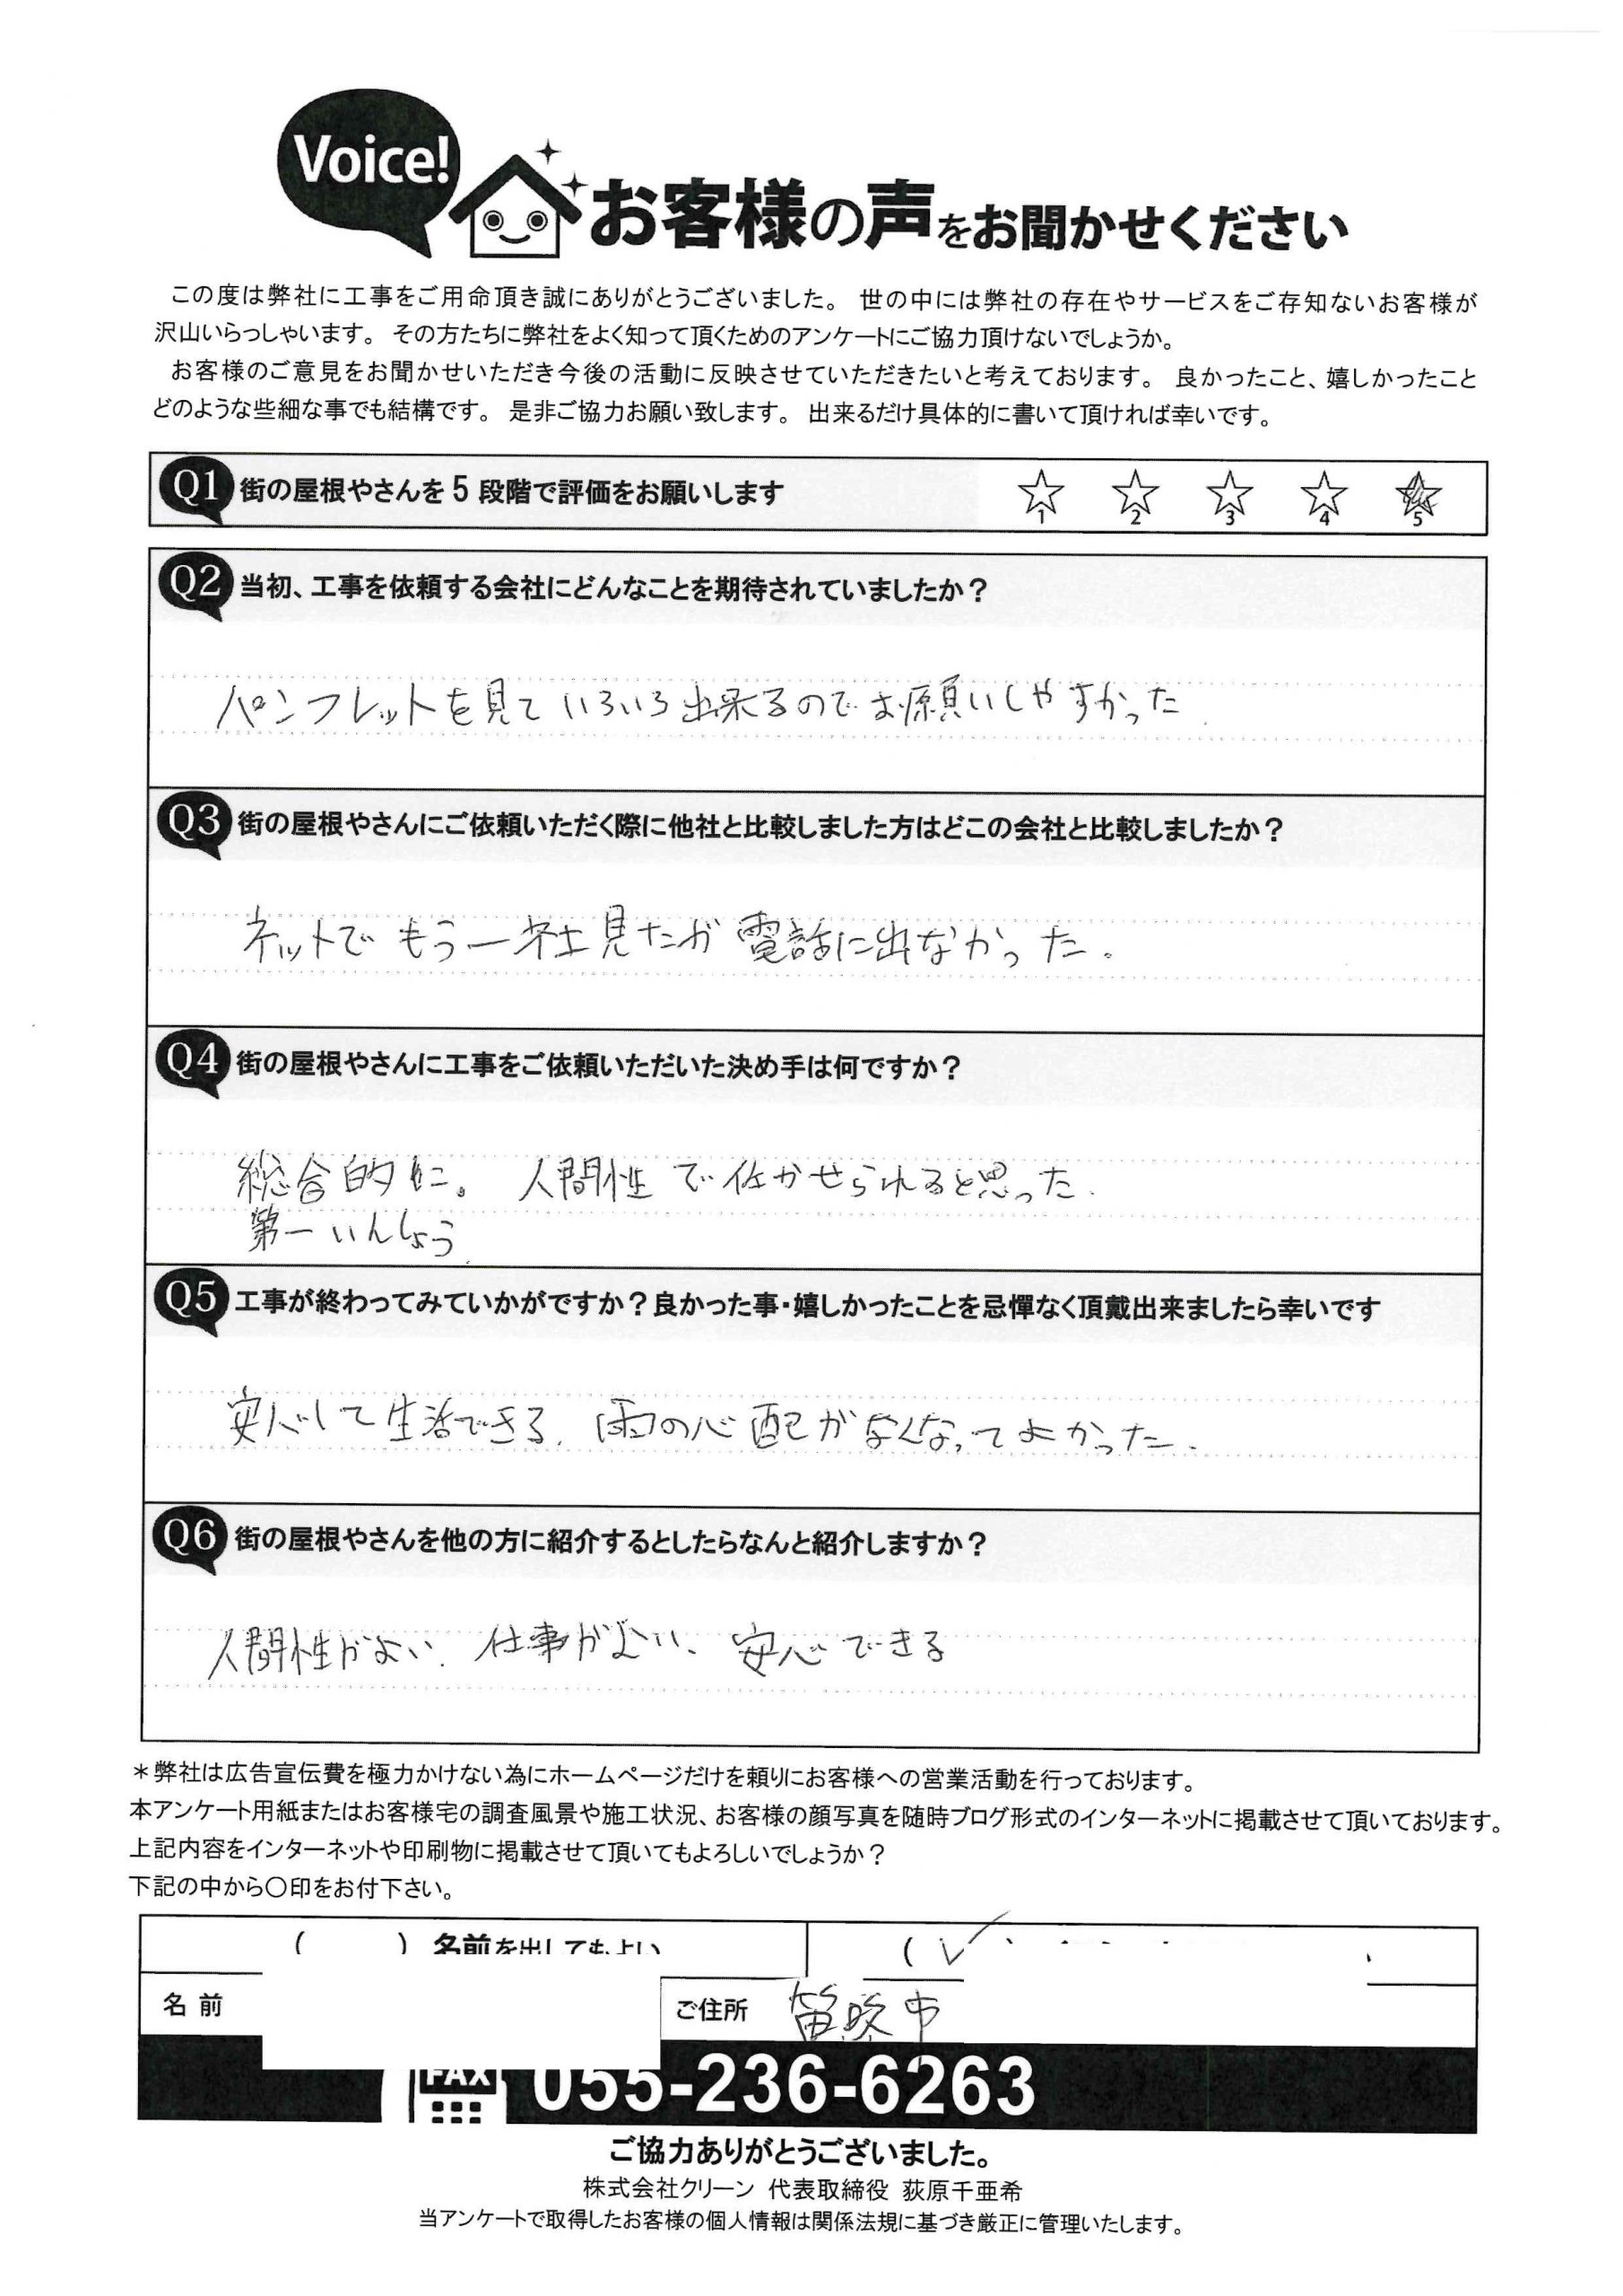 Voice!
お客様の声をお聞かせください
この度は弊社に工事をご用命頂き誠にありがとうございました。 世の中には弊社の存在やサービスをご存知ないお客様が
沢山いらっしゃいます。 その方たちに弊社をよく知って頂くためのアンケートにご協力頂けないでしょうか。
お客様のご意見をお聞かせいただき今後の活動に反映させていただきたいと考えております。 良かったこと、嬉しかったこと
どのような些細な事でも結構です。 是非ご協力お願い致します。 出来るだけ具体的に書いて頂ければ幸いです。
Q1 街の屋根やさんを5段階で評価をお願いします ☆1 ☆2 ☆3 ☆4 ★5
Q2 当初、工事を依頼する会社にどんなことを期待されていましたか?
パンフレットを見ていろいろ出来るのでお願いしやすかった
Q3 街の屋根やさんにご依頼いただく際に他社と比較しました方はどこの会社と比較しましたか?
ネットでもう一社見たが電話に出なかった。
Q4 街の屋根やさんに工事をご依頼いただいた決め手は何ですか?
総合的に。 人間性で任かせられると思った.
第一いんしょう
Q5 工事が終わってみていかがですか?良かった事・嬉しかったことを忌憚なく頂戴出来ましたら幸いです
安心して生活できる. 雨の心配がなくなってよかった.
Q6 街の屋根やさんを他の方に紹介するとしたらなんと紹介しますか?
人間性がよい. 仕事がよい、安心できる
*弊社は広告宣伝費を極力かけない為にホームページだけを頼りにお客様への営業活動を行っております。
本アンケート用紙またはお客様宅の調査風景や施工状況、お客様の顔写真を随時ブログ形式のインターネットに掲載させて頂いております。
上記内容をインターネットや印刷物に掲載させて頂いてもよろしいでしょうか?
下記の中から〇印をお付下さい。
( ) 名前を出してもよい (✓
名前 ご住所 笛吹市
FAX 055-236-6263
ご協力ありがとうございました。
株式会社クリーン 代表取締役 荻原千亜希
当アンケートで取得したお客様の個人情報は関係法規に基づき厳正に管理いたします。